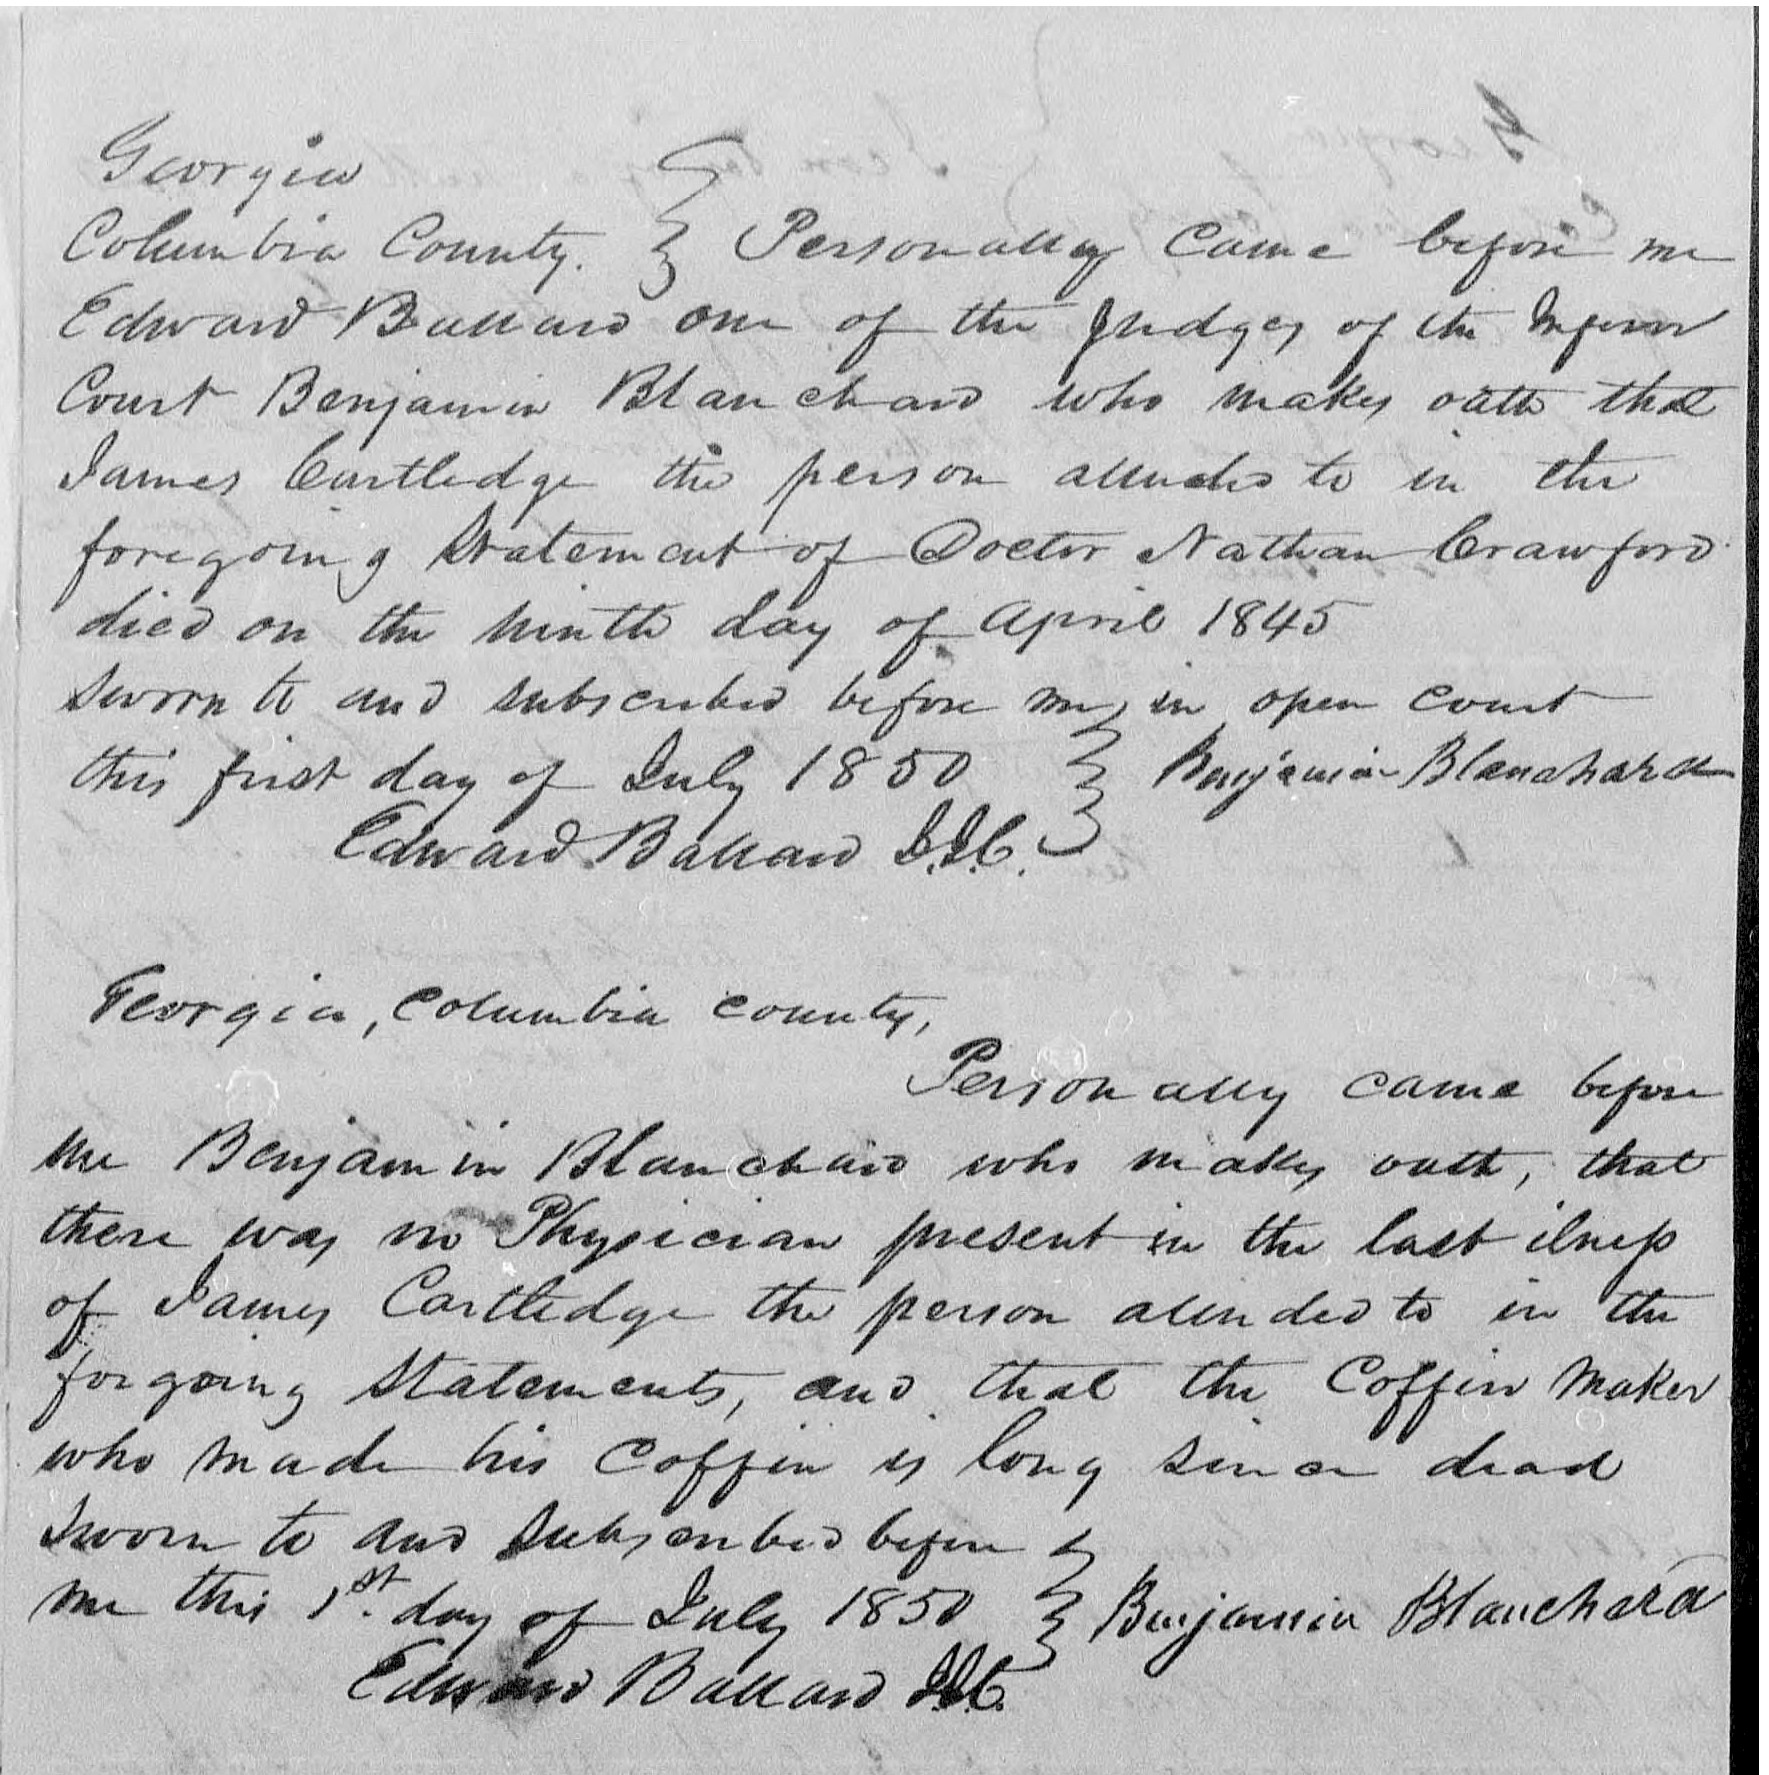 Georgia
Columbia County. Personally came before me
Edward Ballard one of the Judges of the Inferior
Court Benjamin Blanchard who makes oath that
James Cartledge the person alluded to in the
foregoing Statement of Doctor Nathan Crawford
died on the ninth day of April 1845
sworn to and subscribed before me, in open court
this first day of July 1850 Benjamin Blanchard
Edward Ballard J.I.C.
Georgia, Columbia County,
Personally came before
me Benjamin Blanchard who makes oath, that
there was no Physician present in the last ilness
of James Cartledge the person aluded to in the
forgoing Statements, and that the Coffin Maker
who made his Coffin is long since dead
Sworn to and Subscribed before
me this 1st. day of July 1850 Benjamin Blanchard
Edward Ballard J.I.C.